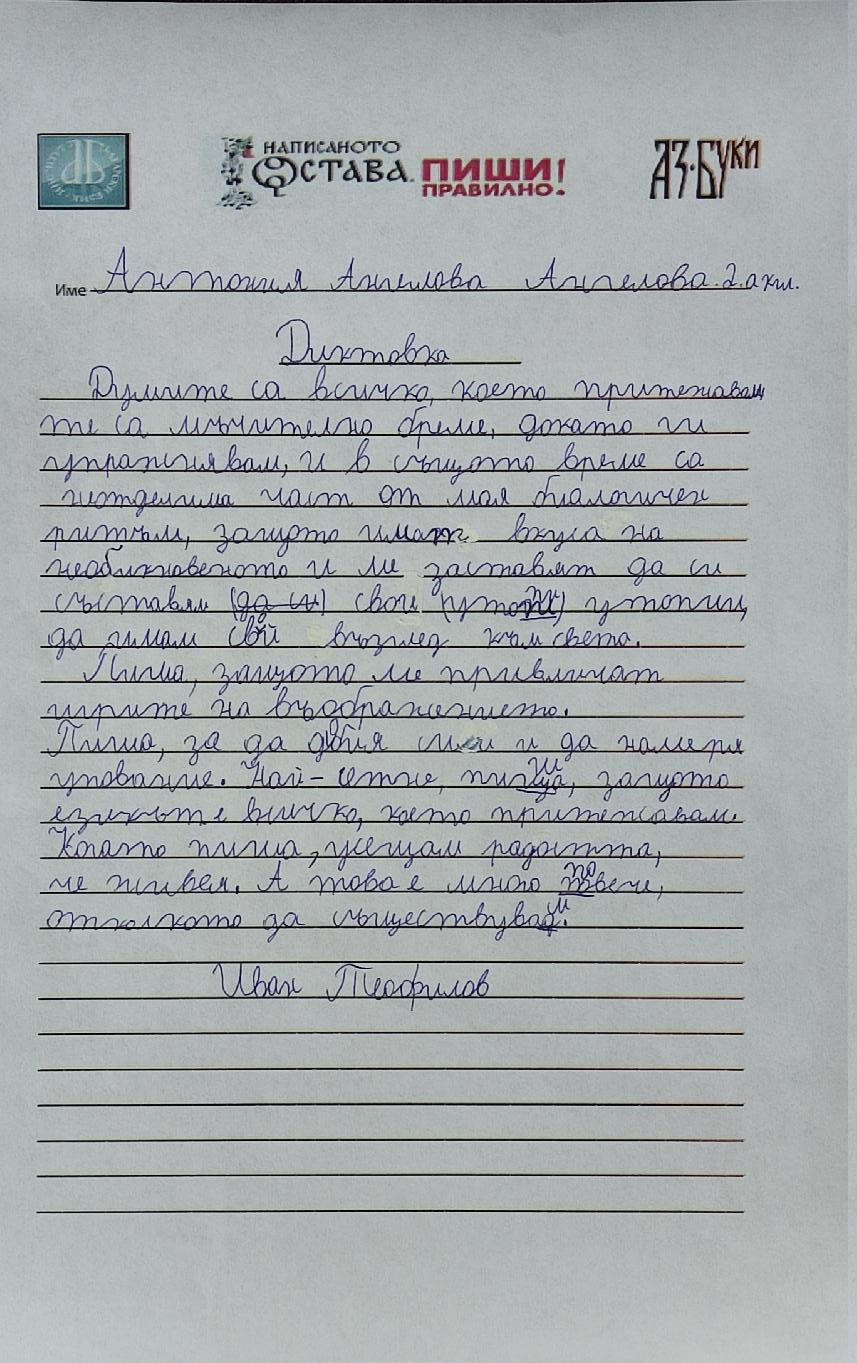 НАПИСАНОТО
ОСТАВА. ПИШИ
ПРАВИЛНО!
АЗ·БУКИ
Име Антония Ангелова Ангелова. 2.а кл.
Диктовка
Думите са всичко, което притежавам
те са мъчително бреме, докато ги
упражнявам, и в същото време са
неотделима част от моя биологичен
ритъм, защото имат вкуса на
необикновеното и ме заставят да си
съставям (да си) свои утопии,
да имам свой възглед към света.
Пиша, защото ме привличат
игрите на въображението.
Пиша, за да добия сили и да намеря
упование. Най-сетне, пиша, защото
езикът е всичко, което притежавам.
Когато пиша, усещам радостта,
че живея. А това е много повече,
отколкото да съществувам.
Иван Теофилов